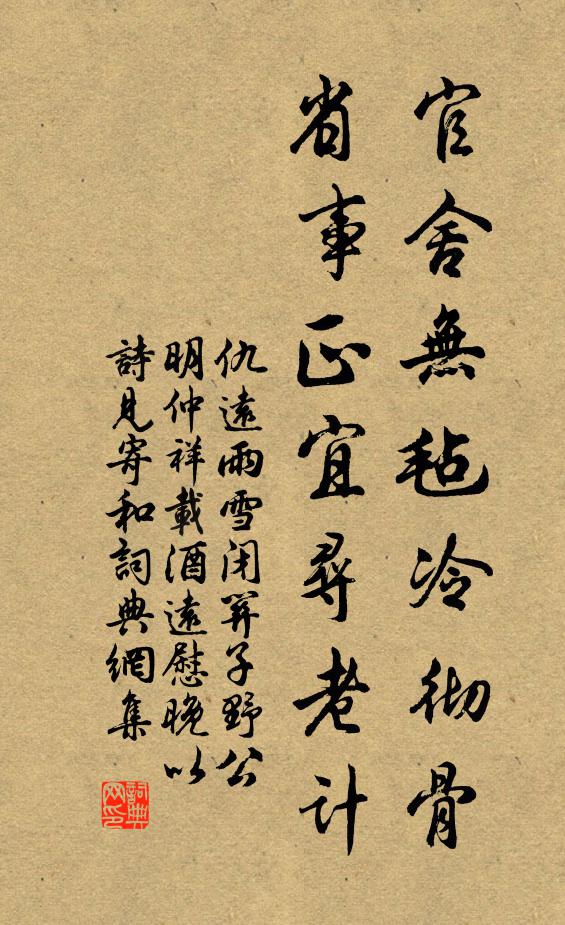 官舍無毡冷彻骨
省事正宜尋老計
仇遠雨雪闭關子野公
明仲祥載酒遠慰晚以
詩見寄和詞典網集
詞典网印